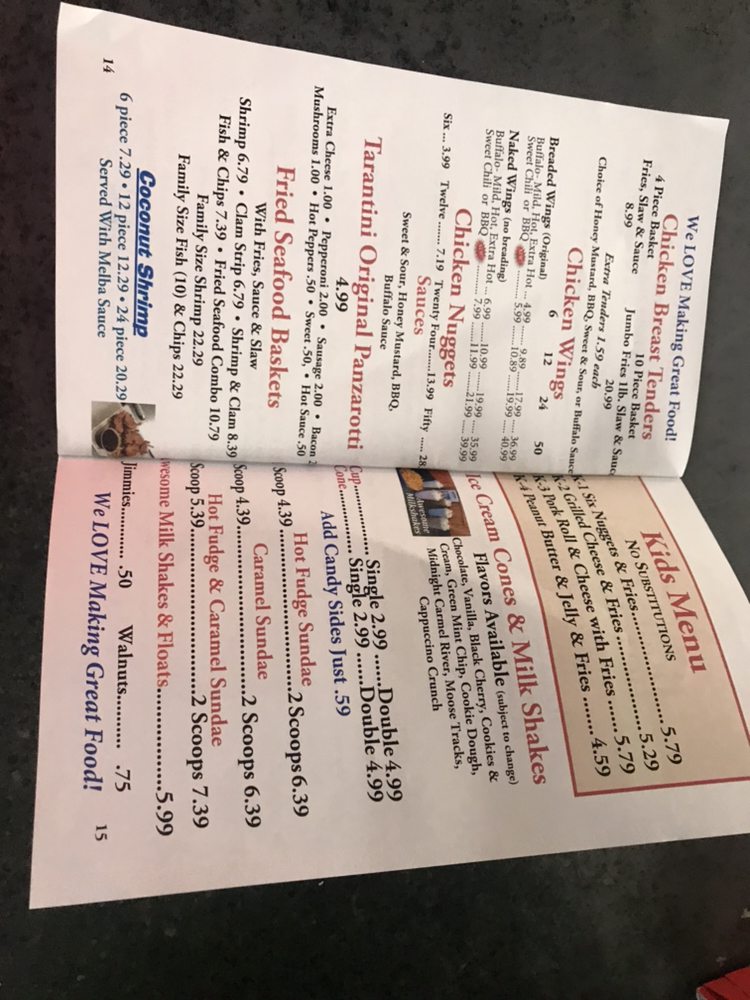 We LOVE Making Great Food!
Chicken Breast Tenders
4 Piece Basket 10 Piece Basket
Fries, Slaw & Sauce Jumbo Fries 1lb. Slaw & Sauc
8.99 20.99
Extra Tenders 1.59 each
Choice of Honey Mustard, BBQ, Sweet & Sour, or Buffalo Sauce
Chicken Wings
Breaded Wings (Original) 6 12 24 50
Buffalo- Mild, Hot, Extra Hot ... 4.99 ........ 9.89 ......17.99 ......36.99
Sweet Chili or BBQ ......... 5.99 ........10.89 ......19.99 ...... 40.99
Naked Wings (no breading)
Buffalo- Mild, Hot, Extra Hot ... 6.99 .......10.99 ......19.99 ...... 35.99
Sweet Chili or BBQ .......... 7.99 ........11.99 .......21.99 ...... 39.99
Chicken Nuggets
Six ... 3.99 Twelve ....... 7.19 Twenty Four.......13.99 Fifty ..... 28.
Sauces
Sweet & Sour, Honey Mustard, BBQ,
Buffalo Sauce
Tarantini Original Panzarotti
4.99
Extra Cheese 1.00 • Pepperoni 2.00 • Sausage 2.00 • Bacon 2
Mushrooms 1.00 • Hot Peppers .50 • Sweet .50, • Hot Sauce .50
Fried Seafood Baskets
With Fries, Sauce & Slaw
Shrimp 6.79 • Clam Strip 6.79 • Shrimp & Clam 8.39
Fish & Chips 7.39 • Fried Seafood Combo 10.79
Family Size Shrimp 22.29
Family Size Fish (10) & Chips 22.29
Coconut Shrimp
6 piece 7.29 • 12 piece 12.29 • 24 piece 20.29
Served With Melba Sauce
14
Kids Menu
NO SUBSTITUTIONS
K-1 Six Nuggets & Fries..................... 5.79
K-2 Grilled Cheese & Fries .................. 5.29
K-3 Pork Roll & Cheese with Fries ...... 5.79
K-4 Peanut Butter & Jelly & Fries ........ 4.59
Ice Cream Cones & Milk Shakes
Flavors Available (subject to change)
Chocolate, Vanilla, Black Cherry, Cookies &
Cream, Green Mint Chip, Cookie Dough,
Midnight Carmel River, Moose Tracks,
Cappuccino Crunch
Awesome
Milkshakes
Cup................... Single 2.99 ......Double 4.99
Cone................. Single 2.99 .......Double 4.99
Add Candy Sides Just .59
Hot Fudge Sundae
Scoop 4.39 ............................2 Scoops 6.39
Caramel Sundae
Scoop 4.39..............................2 Scoops 6.39
Hot Fudge & Caramel Sundae
Scoop 5.39..............................2 Scoops 7.39
wesome Milk Shakes & Floats..................5.99
Jimmies........... .50 Walnuts.......... .75
We LOVE Making Great Food!
15